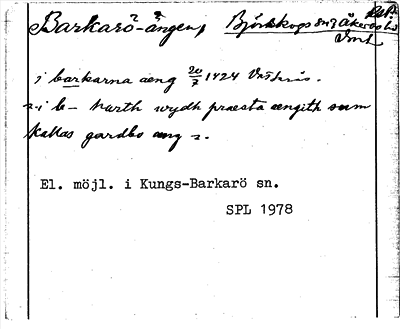 Barkarö-ängen, Björkskogs sn, Åkerbo hd
Vml
i barkarna æng 20/7 1424
i b- narth wydh præsta ængith sum
kallas gardbo æng
El. möjl. i Kungs-Barkarö sn.
SPL 1978